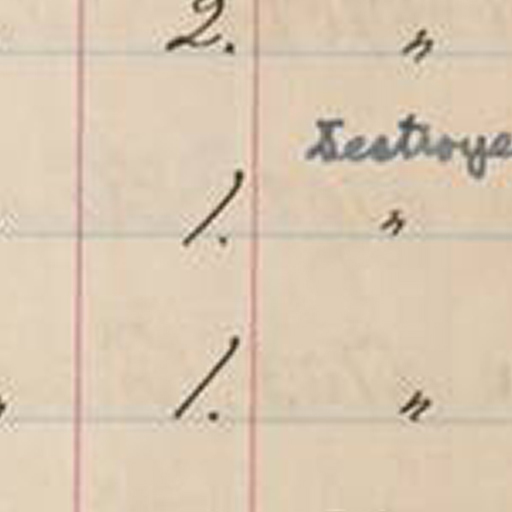 2. "
Destroye
1. "
1. "